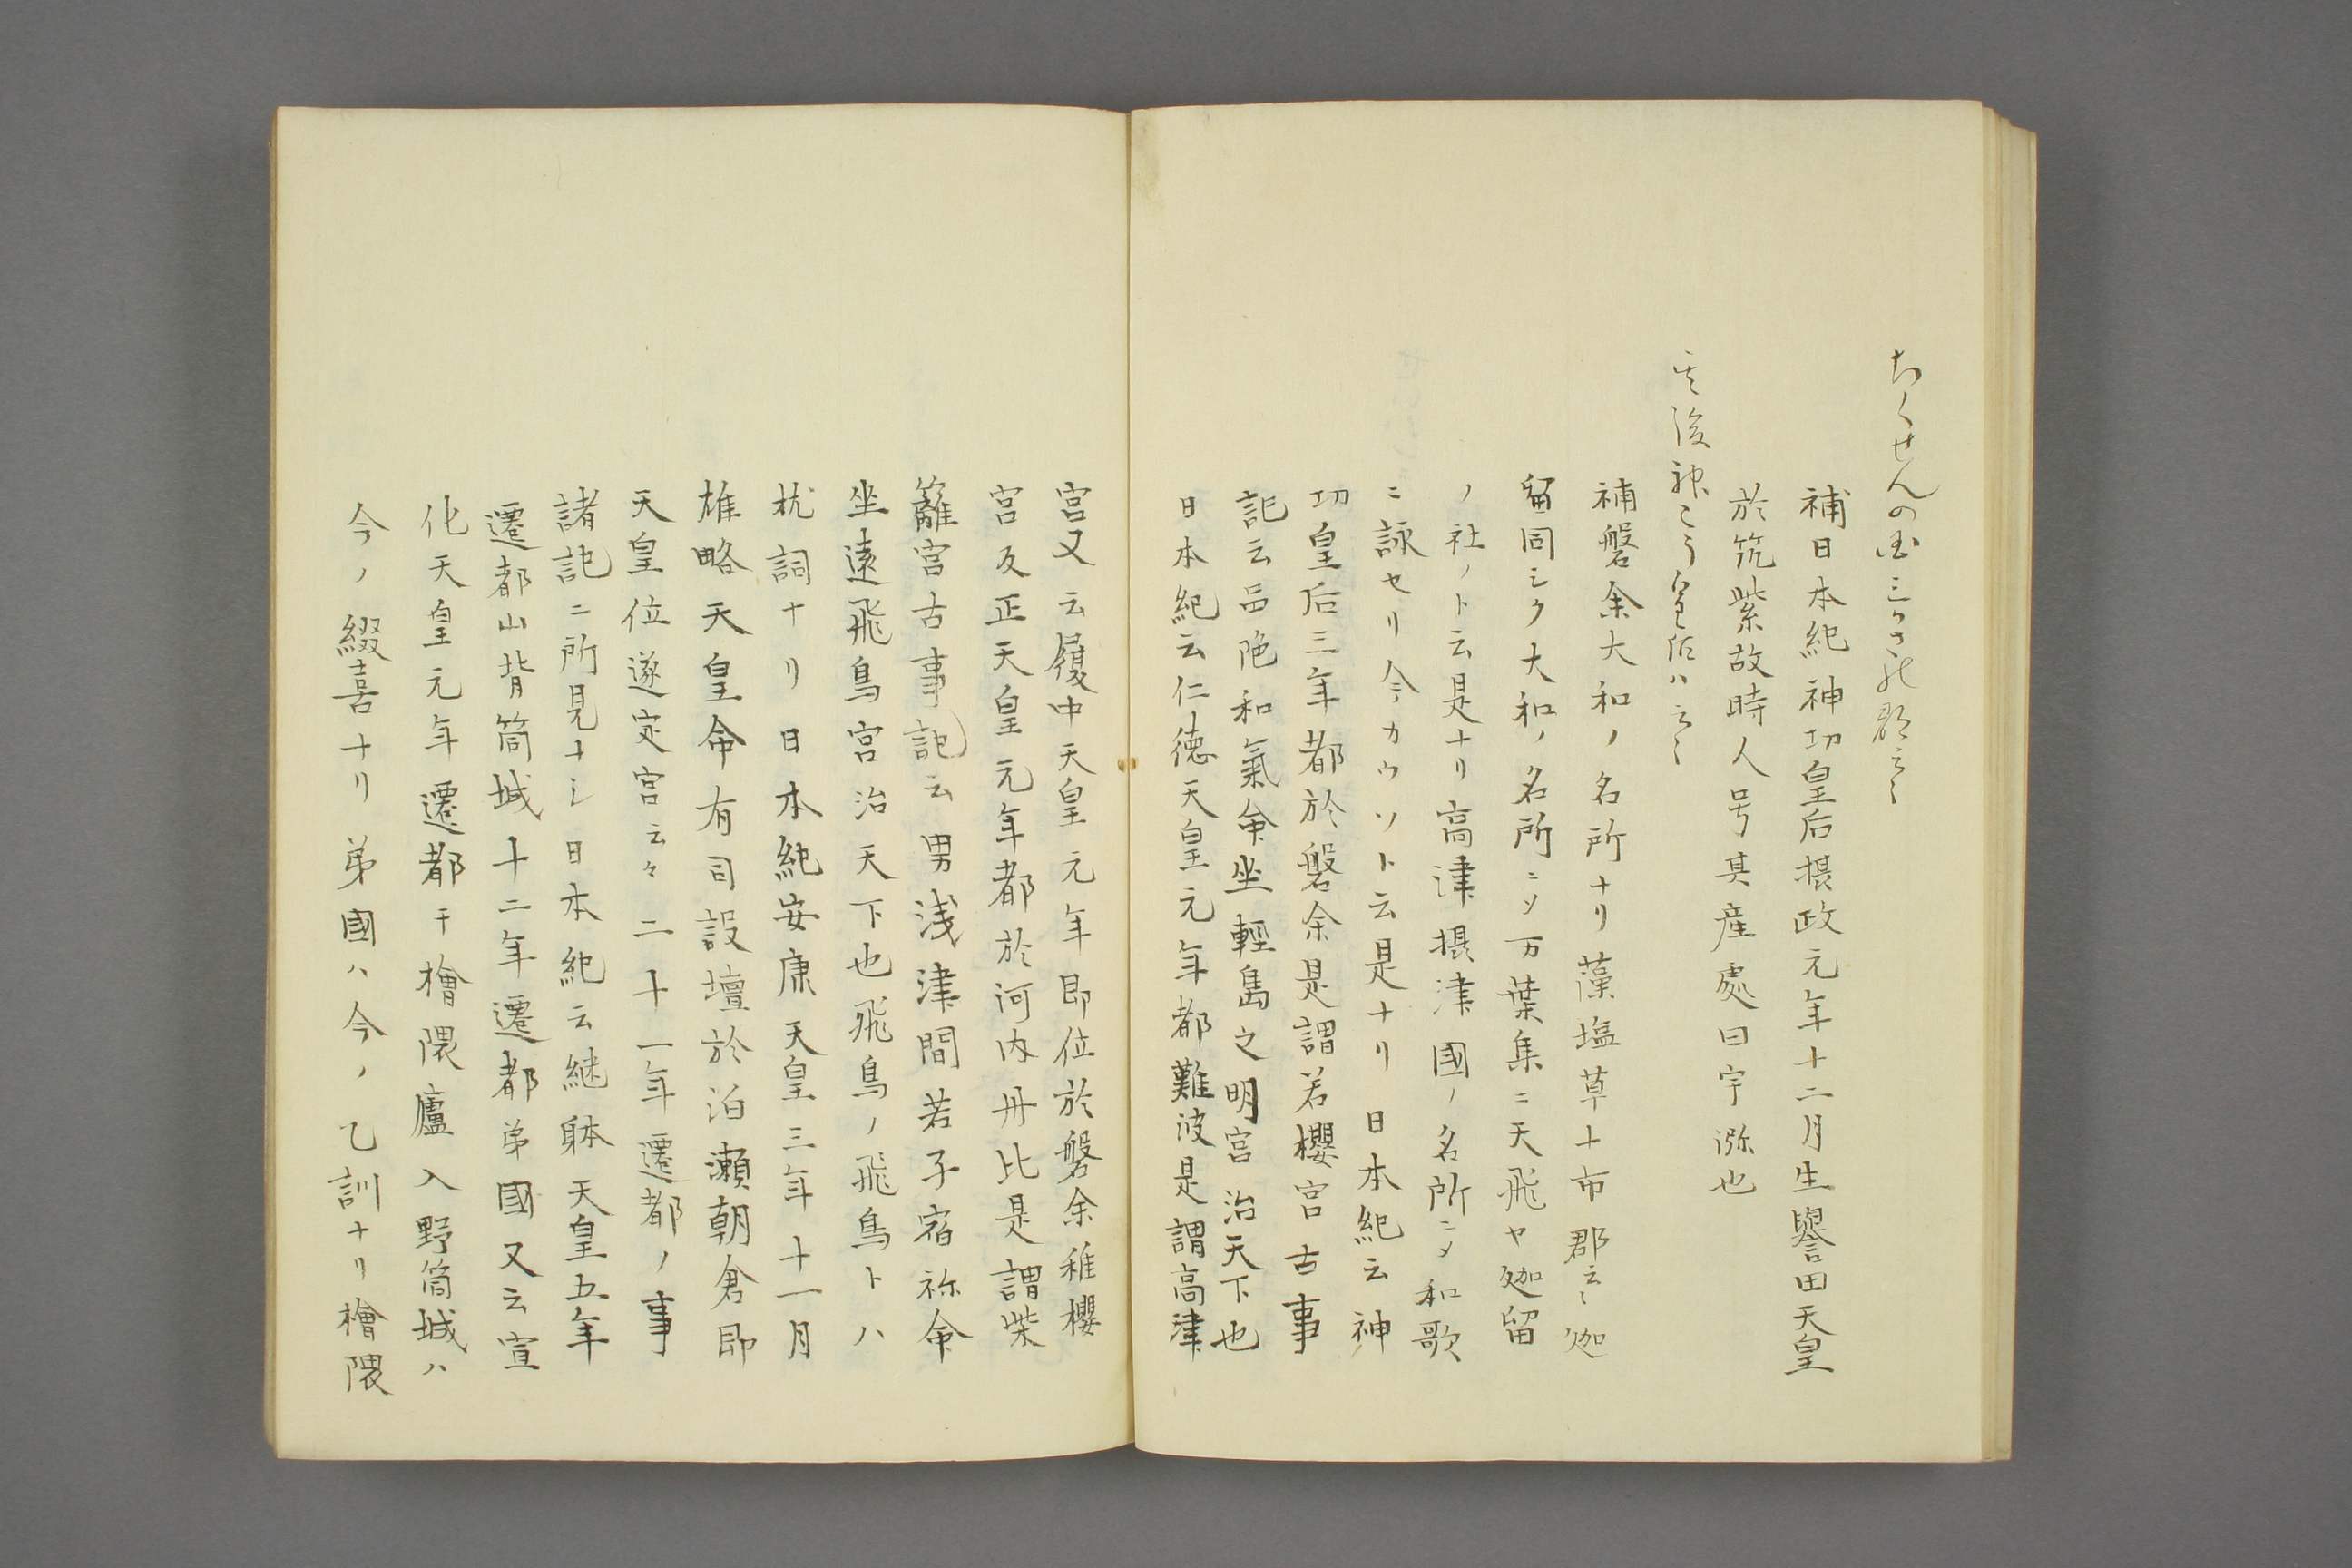 ちくせんの国三かさの郡云〻
補日本紀神功皇后摂政元年十二月生譽田天皇
於筑紫故時人号其産處曰宇瀰也
其後神こう皇后ハ云〻
補磐余大和ノ名所ナリ藻塩草十市郡云〻迦
留同シク大和ノ名所ニメ万葉集ニ天飛ヤ迦留
ノ社ノト云是ナリ高津摂津國ノ名所ニメ和歌
ニ詠セリ今カウツト云是ナリ日本紀云神
功皇后三年都於磐余是謂若櫻宮古事
記云品陁和氣命坐輕島之明宮治天下也
日本紀云仁徳天皇元年都難波是謂高津
宮又云履中天皇元年即位於磐余稚櫻
宮反正天皇元年都於河内丹比是謂柴
籬宮古事記云男浅津間若子宿祢命
坐遠飛鳥宮治天下也飛鳥ノ飛鳥トハ
枕詞ナリ日本紀安康天皇三年十一月
雄略天皇命有司設壇於泊瀬朝倉即
天皇位遂定宮云々二十一年遷都ノ事
諸記ニ所見ナシ日本紀云継躰天皇五年
遷都山背筒城十二年遷都弟國又云宣
化天皇元年遷都于檜隈廬入野筒城ハ
今ノ綴喜ナリ弟國ハ今ノ乙訓ナリ檜隈